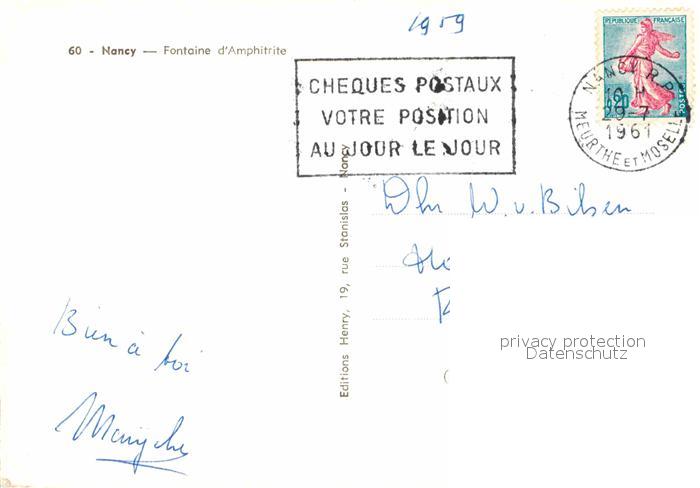 1959
60 - Nancy — Fontaine d'Amphitrite
CHEQUES POSTAUX
VOTRE POSITION
AU JOUR LE JOUR
REPUBLIQUE FRANÇAISE
0,20
POSTES
NANCY R.P.
16 H
29-7
1961
MEURTHE ET MOSELLE
Dhr W. v. Bilsen
Editions Henry, 19, rue Stanislas - Nancy
Bien à toi
privacy protection
Datenschutz